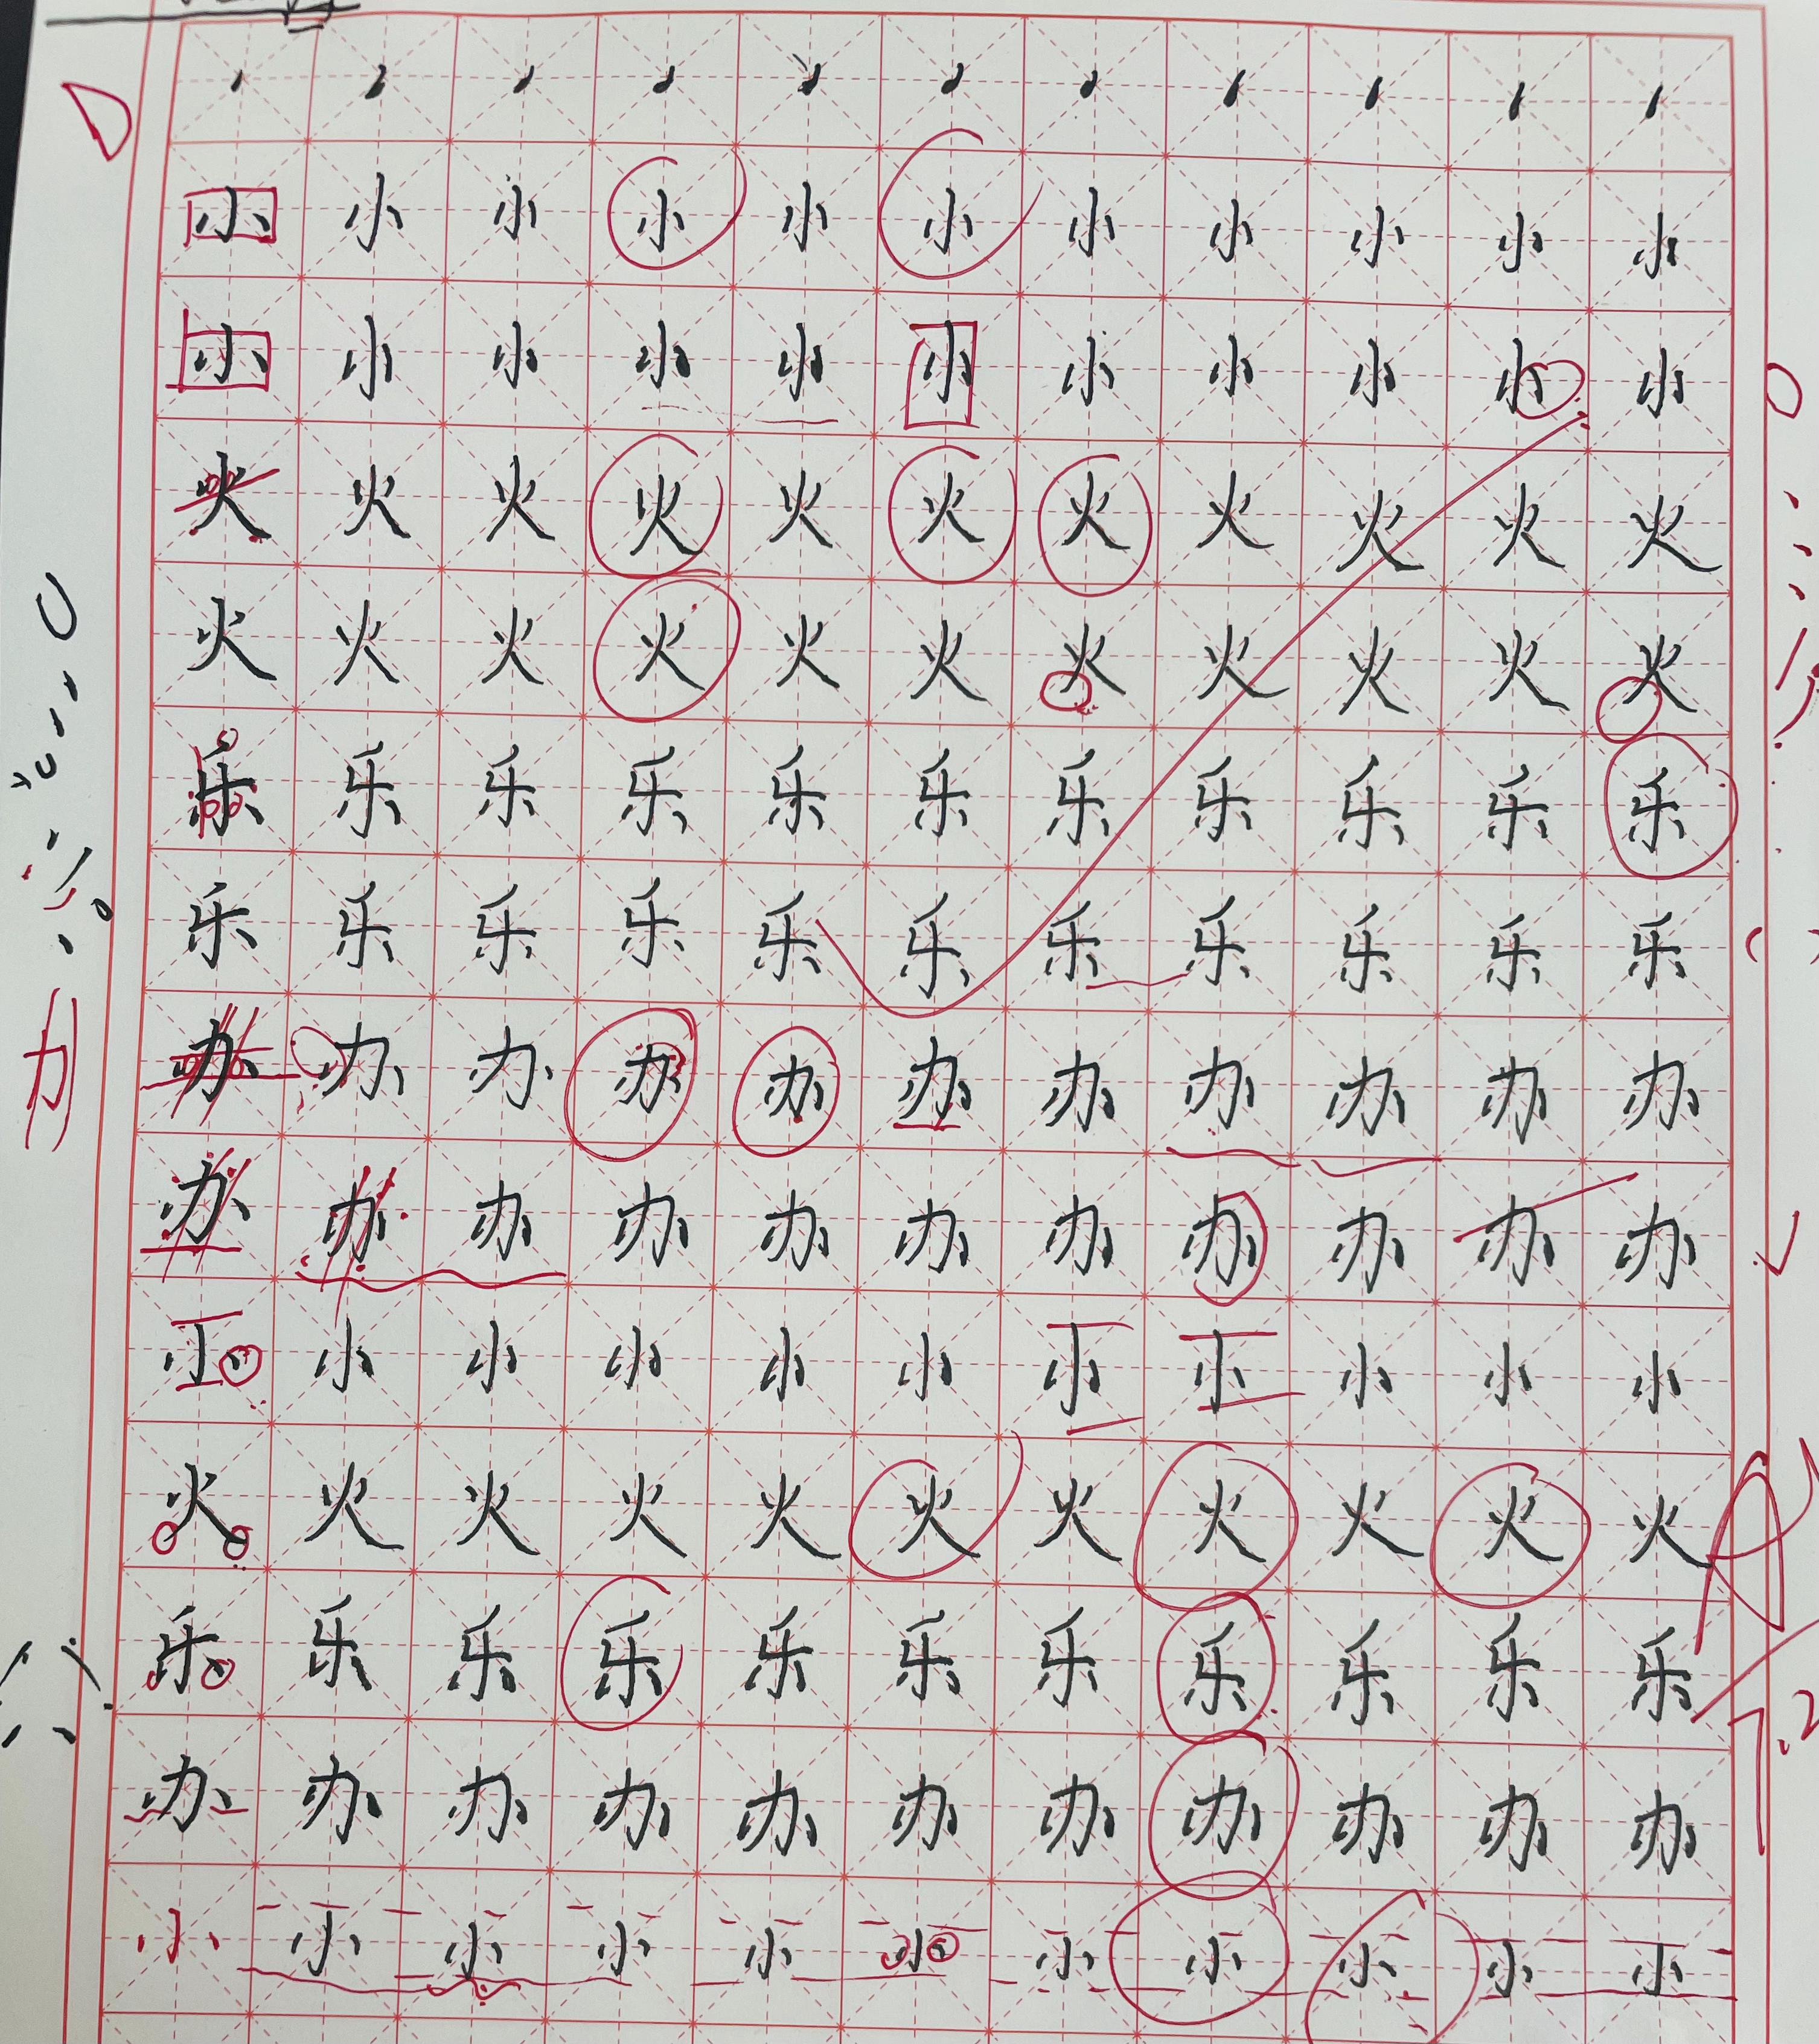 丶丶丶丶丶丶丶丶丶丶丶
小小小小小小小小小小小
小小小小小小小小小小小
火火火火火火火火火火火
火火火火火火火火火火火
乐乐乐乐乐乐乐乐乐乐乐
乐乐乐乐乐乐乐乐乐乐乐
办办办办办办办办办办办
办办办办办办办办办办办
小小小小小小小小小小小
火火火火火火火火火火火
乐乐乐乐乐乐乐乐乐乐乐
办办办办办办办办办办办
小小小小小小小小小小小
力